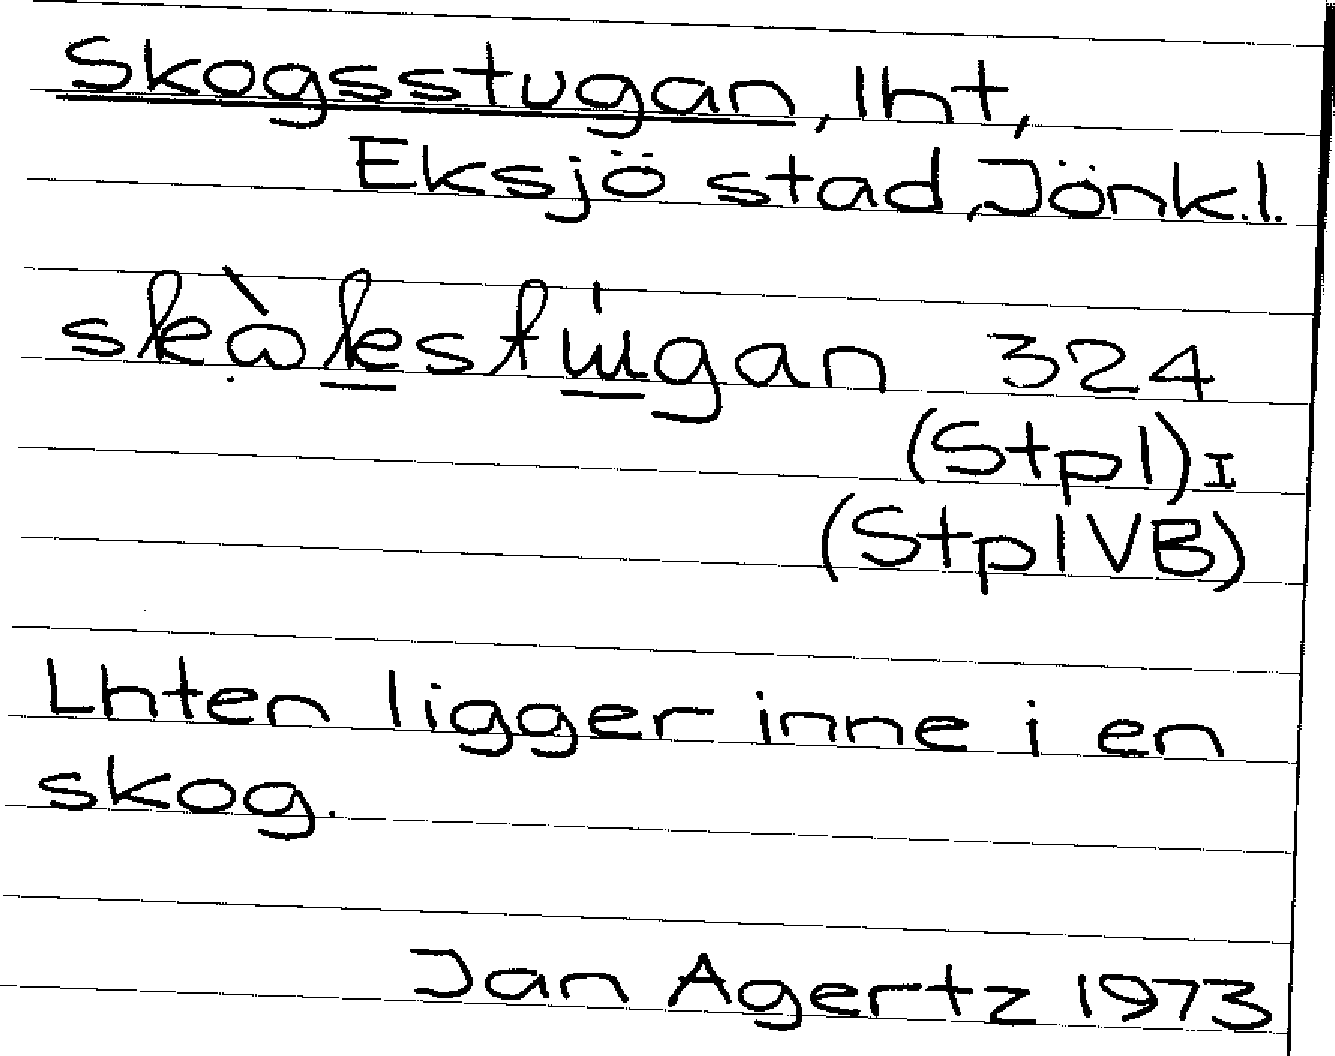 Skogsstugan, lht,
Eksjö stad, Jönk.l.
skọ̀kestɯ́gan 324
(Stpl)I
(StplVB)
Lhten ligger inne i en
skog.
Jan Agertz 1973